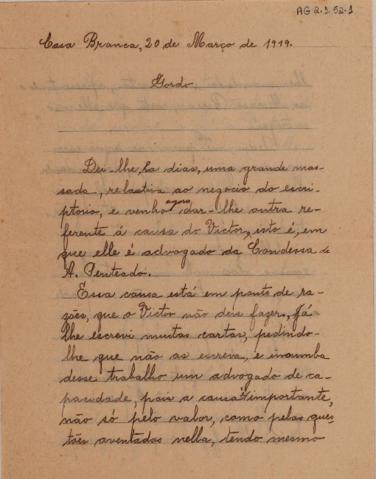 AG 2.3.52-1
Casa Branca, 20 de Março de 1919.
Gordo.
Dei-lhe, ha dias, uma grande mas-
sada, relativa ao negocio do escri-
ptorio, e venho agora dar-lhe outra re-
ferente á causa do Victor, isto é, em
que elle é advogado da Condessa de
A. Penteado.
Essa causa está em ponto de ra-
zões, que o Victor não deve fazer, já
lhe escrevi muitas cartas, pedindo-
lhe que não as escreva, e incumba
desse trabalho um advogado de ca-
pacidade, pois a causa é importante,
não só pelo valor, como pelas ques-
tões aventadas nella, tendo mesmo